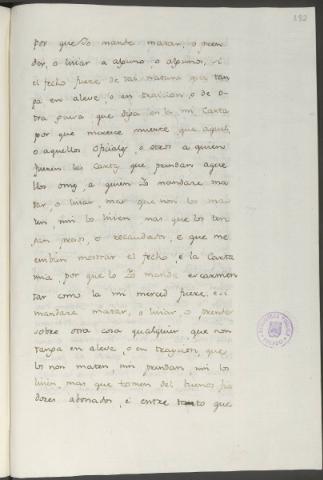 192
por que Yo mande matar, o pren
der, o lisiar a alguno, o algunos, si
el fecho fuere de tal natura que tan
ga en aleve, o en traicion, o de o-
tra guisa que diga en la mi Carta
por que merece muerte que aquel,
o aquellos Oficiales, o otros a quien
fueren las Cartas que prendan aque
llos omes, a quien Yo mandare ma
tar, o lisiar, mas que non los ma
ten, nin los lisien mas que los ten
gan presos, o recaudados, e que me
embien mostrar el fecho, e la Carta
mia, por que lo Yo mande escarmen
tar como la mi merced fuere, e si
mandare matar, o lisiar o prender
sobre otra cosa qualquier que non
tanga en aleve, o en traycion, que
los non maten, nin prendan, nin los
lisien, mas que tomen del buenos fia
dores abonados, e entre tanto que